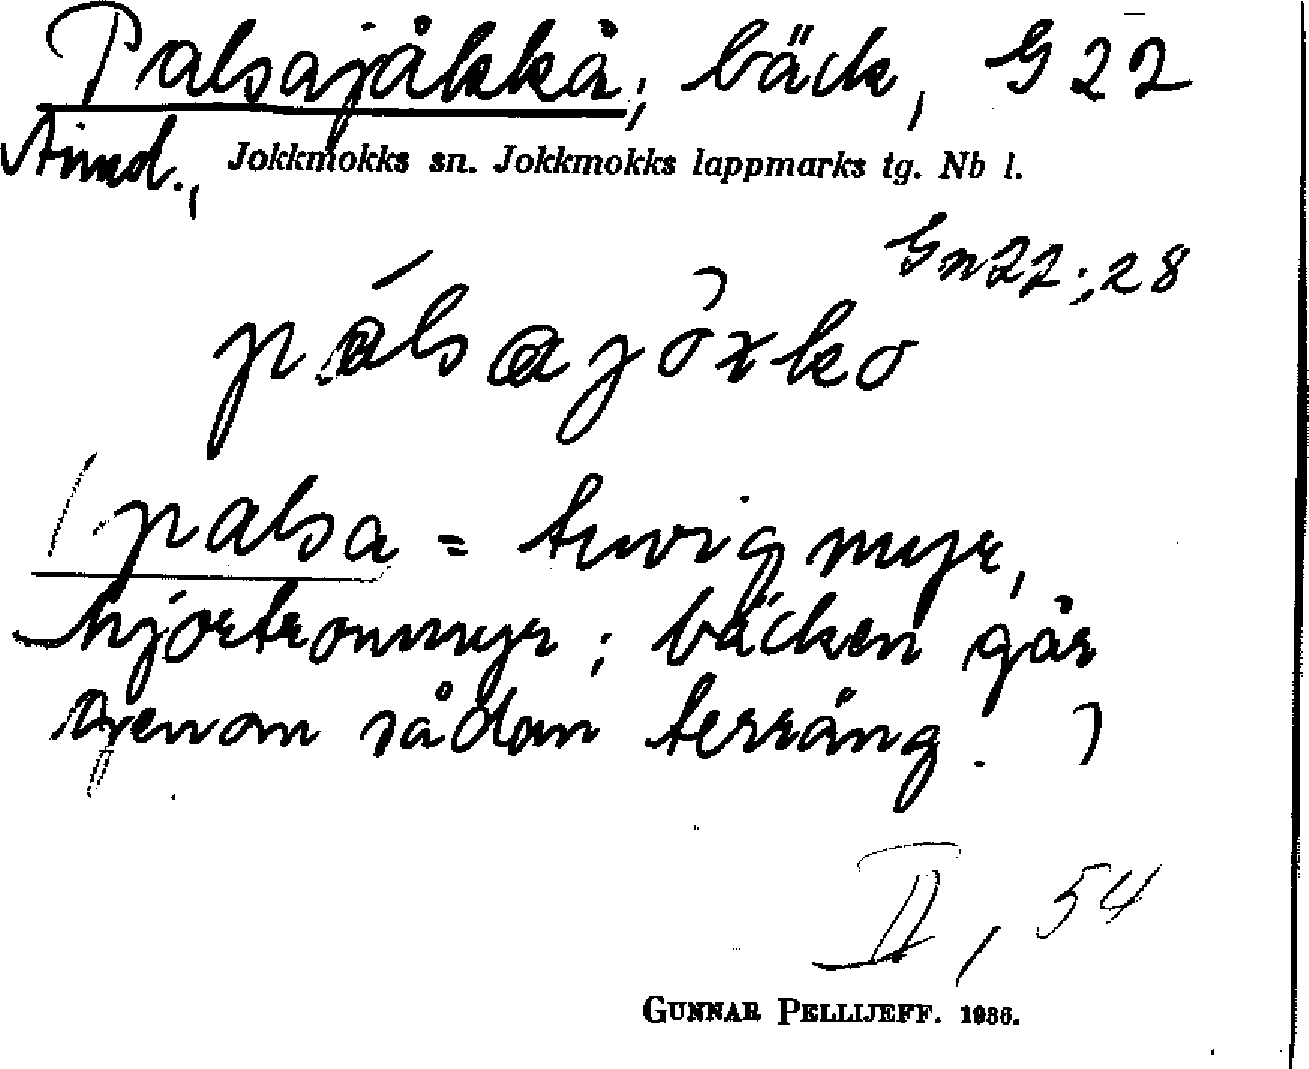 Palsajåkkå; bäck, G 22
Jokkmokks sn. Jokkmokks lappmarks tg. Nb l.
Gn 22; 28
(palsa = tuvig myr,
hjortronmyr; bäcken går
genom sådan terräng.)
II, 54
GUNNAR PELLIJEFF. 1936.